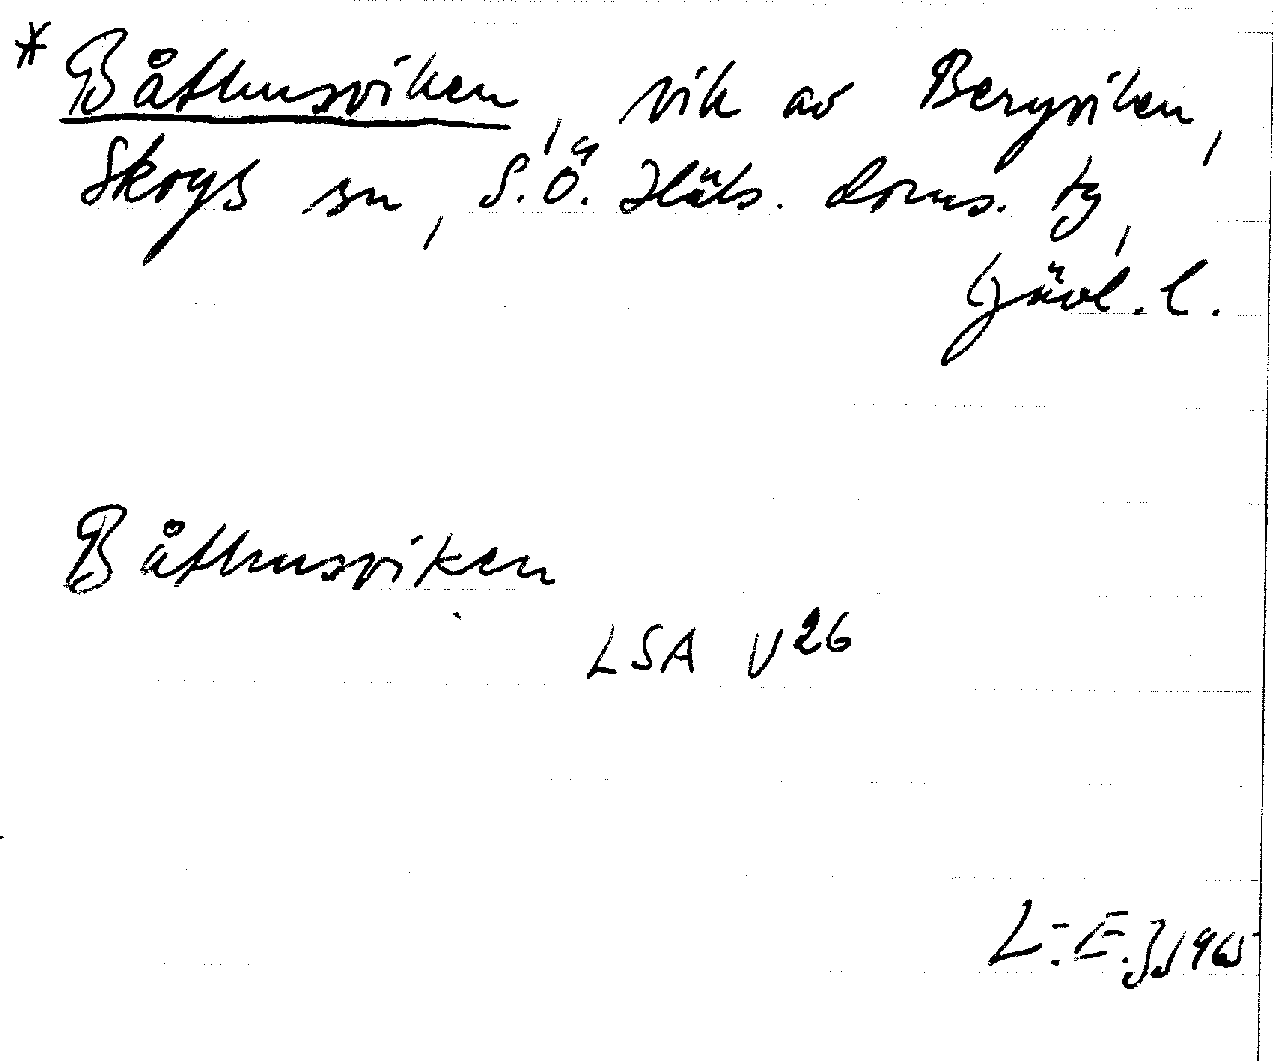 * Båthusviken, vik av Bergviken,
Skogs sn, S.Ö. Häls. doms. tg,
Gävl. l.
Båthusviken
LSA V26
L-E.